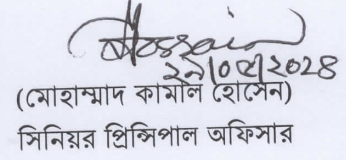 Hossain
২৯/০৫/২০২৪
(মোহাম্মাদ কামাল হোসেন)
সিনিয়র প্রিন্সিপাল অফিসার